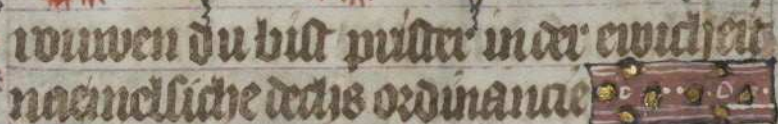 rouwen du bist prister in der ewicheit
na emelssiche dechs ordinancie